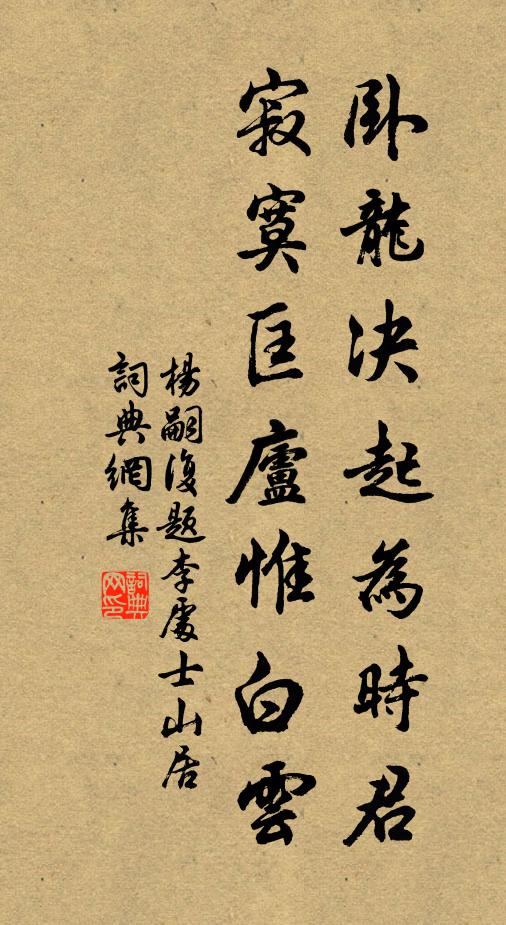 臥龍決起為時君
寂寞匡廬惟白雲
楊嗣復題李處士山居
詞典網集
詞典网印